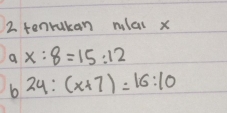 2 tentukan nilai x
a x : 8 = 15 : 12
b 24 : (x+7) = 16 : 10